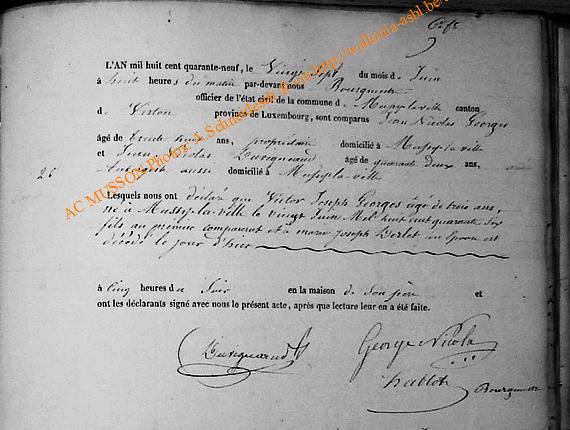 6e fs
L'AN mil huit cent quarante-neuf, le Vingt sept du mois de Juin
à huit heures du matin par-devant nous Bourgmestre
officier de l'état civil de la commune de Mussy la ville canton
de Virton province de Luxembourg, sont comparus Jean Nicolas Georges
âgé de trente huit ans, propriétaire domicilié à Mussy la ville
et Jean Nicolas âgé de quarante deux ans,
26
Aubergiste aussi domicilié à Mussy la ville
Lesquels nous ont déclaré que Victor Joseph Georges âgé de trois ans,
né à Mussy-la-ville le vingt Juin Mil huit cent quarante six
fils du premier comparant et à marie Joseph son Epouse est
décédé le jour d'hier
à Cinq heures du Soir en la maison de Son père et
ont les déclarants signé avec nous le présent acte, après que lecture leur en a été faite.
George Nicola
Bourgmestre
AC MUSSON Photos: A. Schneider http://wallonia-asbl.be/